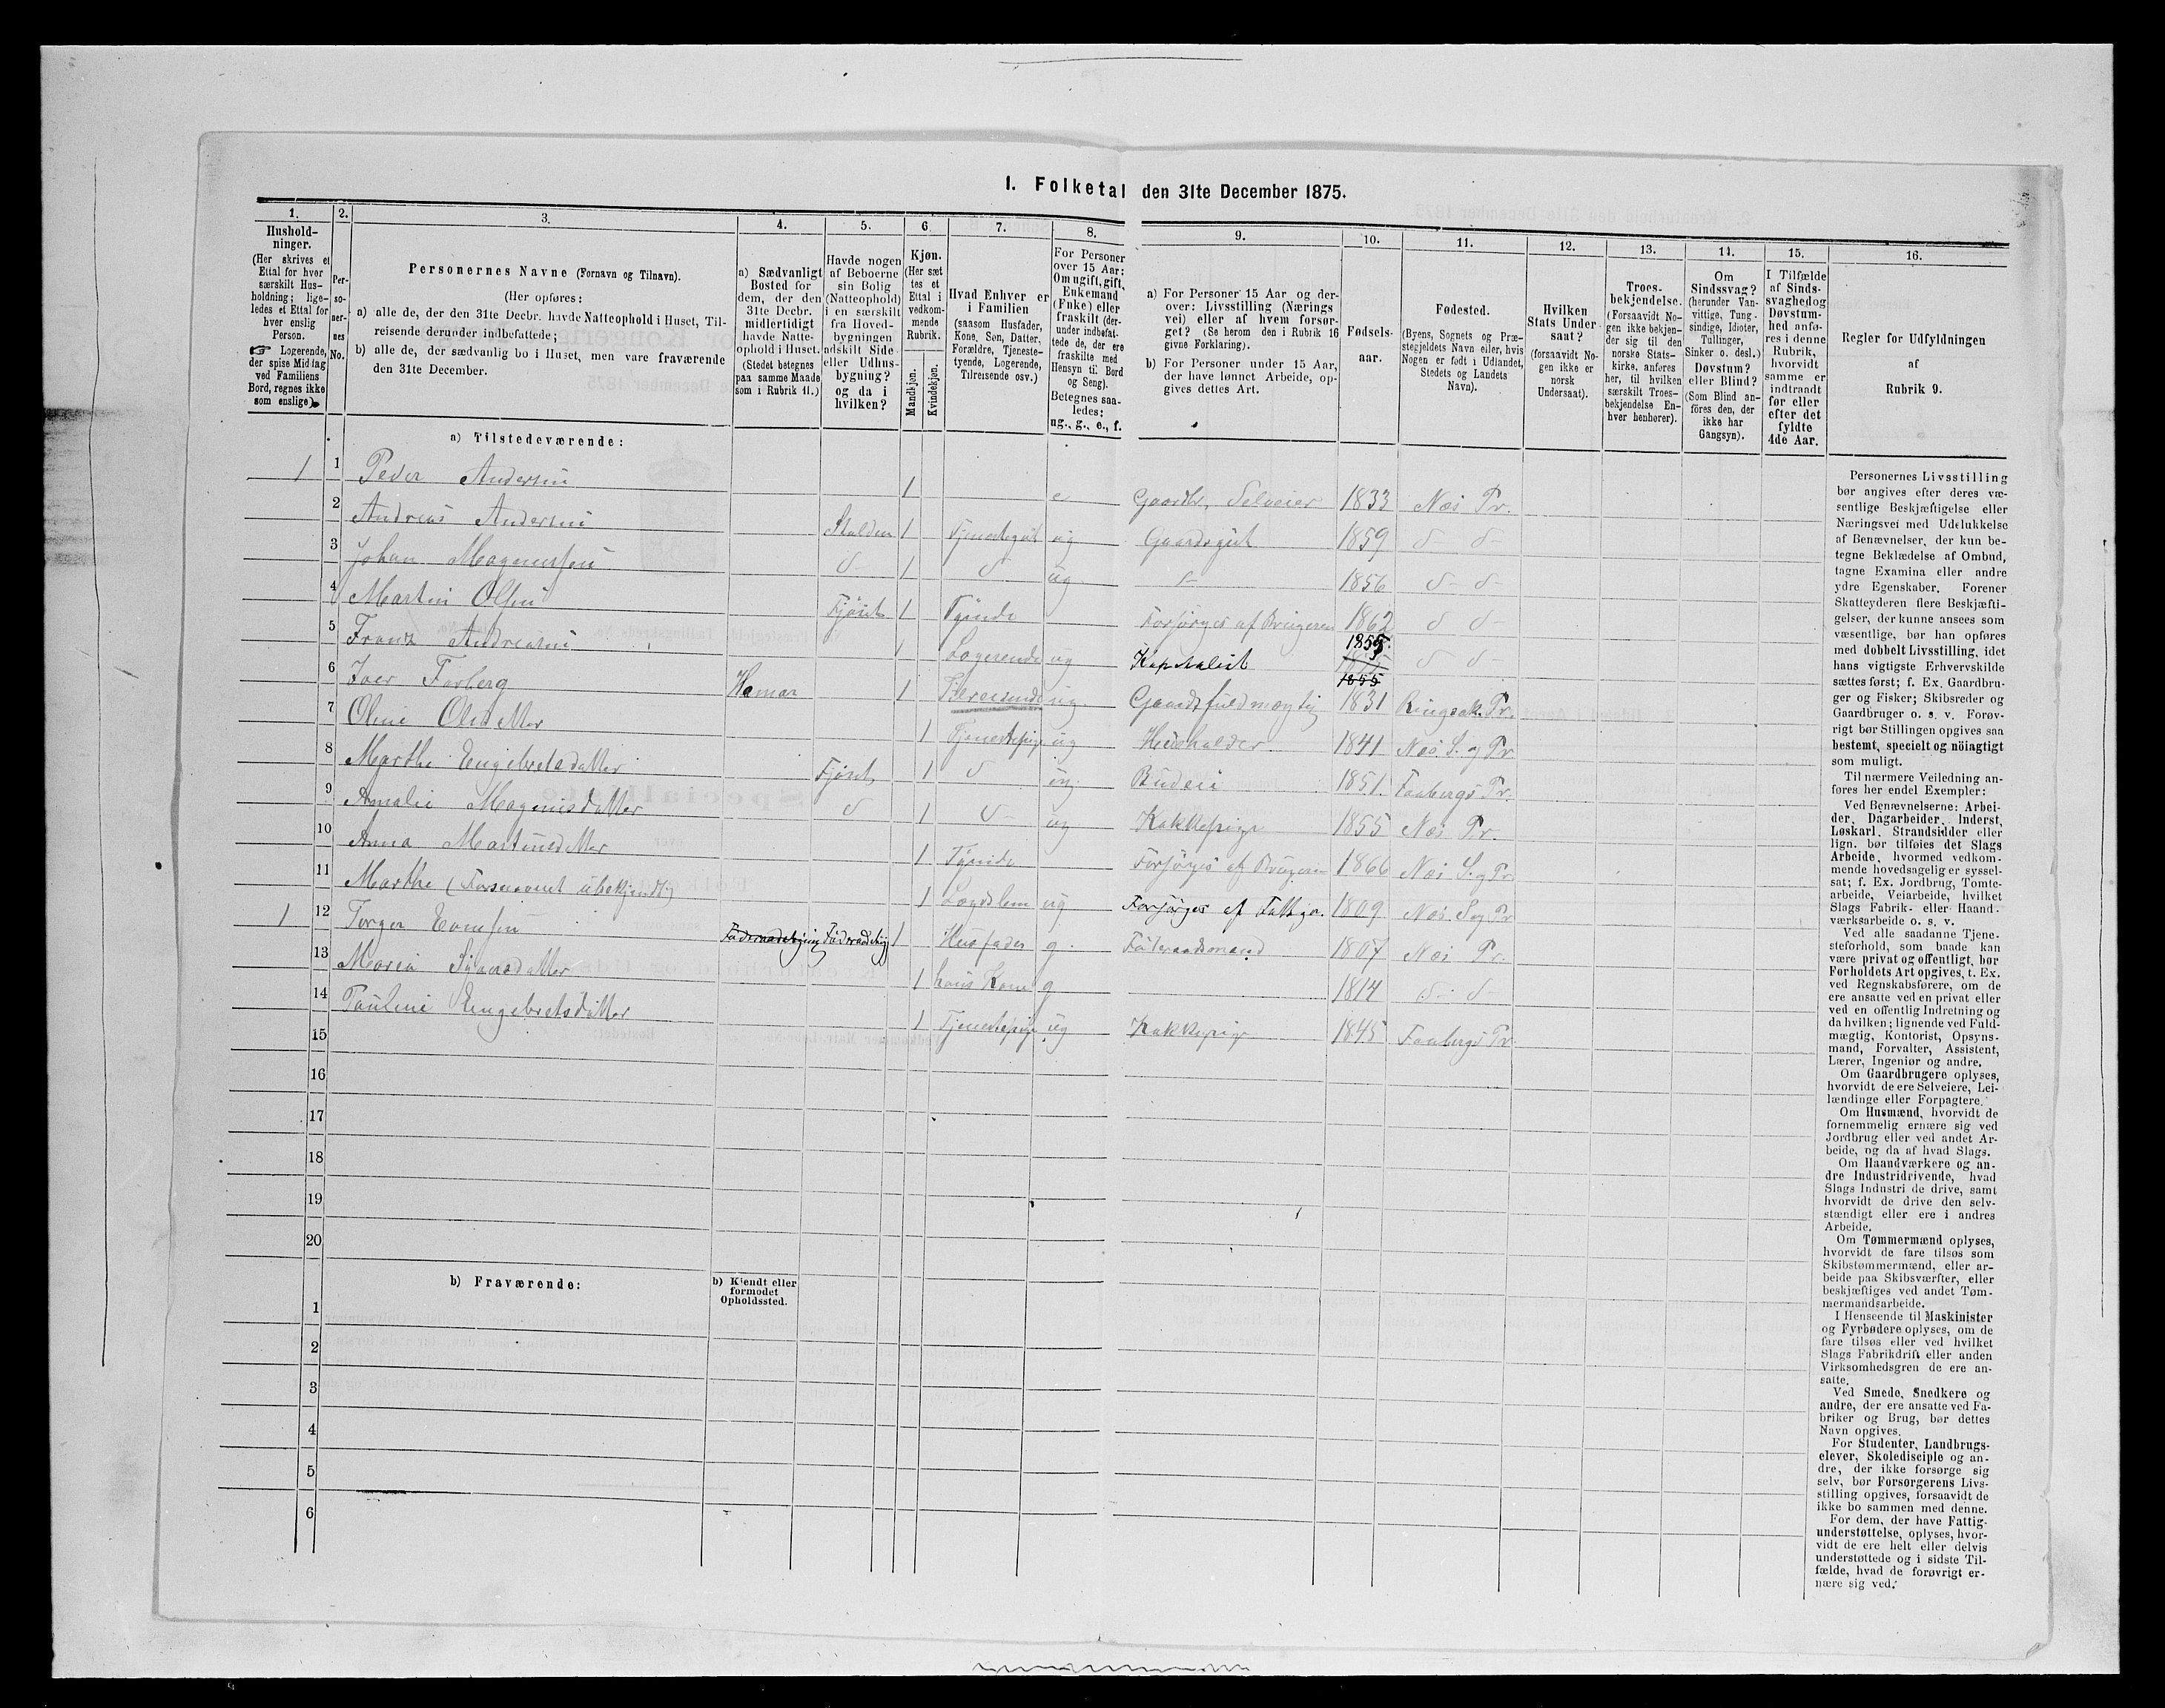 I. Folketal den 31te December 1875.
1. 2. 3. 4. 5. 6. 7. 8. 9. 10. 11. 12. 13. 14. 15. 16.
Hushold-
ninger.
(Her skrives et
Ettal for hver
særskilt Hus-
holdning; lige-
ledes et Ettal for
hver enslig
Person.
☞ Logerende,
der spise Middag
ved Familiens
Bord, regnes ikke
som enslige).
Per-
so-
ner-
nes
No.
Personernes Navne (Fornavn og Tilnavn).
(Her opføres:
a) alle de, der den 31te Decbr. havde Natteophold i Huset, Til-
reisende derunder indbefattede;
b) alle de, der sædvanlig bo i Huset, men vare fraværende
den 31te December.
a) Sædvanligt
Bosted for
dem, der den
31te Decbr.
midlertidigt
havde Natte-
ophold i Huset.
(Stedet betegnes
paa samme Maade
som i Rubrik 11.)
Havde nogen
af Beboerne
sin Bolig
(Natteophold)
i en særskilt
fra Hoved-
bygningen
adskilt Side-
eller Udhus-
bygning?
og da i
hvilken?
Kjøn.
(Her sæt
tes et
Ettal i
vedkom-
mende
Rubrik.
Mandkjøn.
Kvindekjøn.
Hvad Enhver er
i Familien
(saasom Husfader,
Kone, Søn, Datter,
Forældre, Tjeneste-
tyende, Logerende,
Tilreisende osv.)
For Personer
over 15 Aar:
Om ugift, gift,
Enkemand
(Enke) eller
fraskilt (der-
under indbefat-
tede de, der ere
fraskilte med
Hensyn til Bord
og Seng).
Betegnes saa-
ledes:
ug., g., e., f.
a) For Personer 15 Aar og der-
over: Livsstilling (Nærings
vei) eller af hvem forsør-
get? (Se herom den i Rubrik 16
givne Forklaring).
b) For Personer under 15 Aar,
der have lønnet Arbeide, op-
gives dettes Art.
Fødsels-
aar.
Fødested.
(Byens, Sognets og Præ-
stegjeldets Navn eller, hvis
Nogen er født i Udlandet,
Stedets og Landets
Navn).
Hvilken
Stats Under-
saat?
(forsaavidt No-
gen ikke er
norsk
Undersaat).
Troes-
bekjendelse.
(Forsaavidt No-
gen ikke bekjen-
der sig til den
norske Stats-
kirke, anføres
her, til hvilken
særskilt Troes-
bekjendelse En-
hver henhører).
Om
Sindssvag?
(herunder Van-
vittige, Tung-
sindige, Idioter,
Tullinger,
Sinker o. desl.)
Døvstum?
eller Blind?
(Som Blind an-
føres den, der
ikke har
Gangsyn).
I Tilfælde
af Sinds-
svaghed og
Døvstum-
hed anfø-
res i denne
Rubrik,
hvorvidt
samme er
indtraadt
før eller
efter det
fyldte
4de Aar.
Regler for Udfyldningen
af
Rubrik 9.
a) Tilstedeværende:
1 1 Peder Andersen 1 e Gaardbr. Selveier 1833 Næs Pr.
2 Andreas Andersen Stalden 1 Tjenestegut ug Gaardsgut 1859 d- d-
3 Johan Magnussen d- 1 d ug. d- 1856 d- d-
4 Martin Olsen Fjöset 1 Tyende Forsörges af Brugeren 1862 d d-
5 Franz Andreasen 1 Logerende ug Kapitalist 1855. d d-
6 Iver Farberg Hamar 1 Tilreisende ug. Gaardsfuldmægtig 1831 Ringsak. Pr.
7 Oline Olsdatter 1 Tjenestepige ug Husholder 1841 Næs S. og Pr
8 Marthe Engebretsdatter Fjöset 1 d ug. Budeie 1851. Faabergs Pr.
9 Amalie Magnusdatter d 1 d- ug Kokkepige 1855 Næs Pr.
10 Anna Martinsdatter 1 Tyende Forsörges af Brugeren 1866 Næs S. og Pr.
11 Marthe (Farsnavnet ubekjendtlig) 1 Lægdslem ug Forsörges af Fattigv. 1809 Næs S og Pr
1 12 Torger Evensen 1 Husfader g. Föderaadsmand 1807 Næs Pr.
13 Maria Syversdatter 1 hans Kone g 1814 d- d
14 Pauline Engebretsdatter 1 Tjenestepige ug Kokkepige 1845 Faabergs Pr
15
16
17
18
19
20
b) Fraværende:
b) Kjendt eller
formodet
Opholdssted.
1
2
3
4
5
6
Personernes Livsstilling
bør angives efter deres væ-
sentlige Beskjæftigelse eller
Næringsvei med Udelukkelse
af Benævnelser, der kun be-
tegne Beklædelse af Ombud,
tagne Examina eller andre
ydre Egenskaber. Forener
Skatteyderen flere Beskjæfti-
gelser, der kunne ansees som
væsentlige, bør han opføres
med dobbelt Livsstilling, idet
hans vigtigste Erhvervskilde
sættes først; f. Ex. Gaardbru-
ger og Fisker; Skibsreder og
Gaardbruger o. s. v. Forøv-
rigt bør Stillingen opgives saa
bestemt, specielt og nöiagtigt
som muligt.
Til nærmere Veiledning an-
føres her endel Exempler:
Ved Benævnelserne: Arbei-
der, Dagarbeider, Inderst,
Løskarl, Strandsidder eller
lign. bør tilføies det Slags
Arbeide, hvormed vedkom-
mende hovedsagelig er syssel-
sat; f. Ex. Jordbrug, Tomte-
arbeide, Veiarbeide, hvilket
Slags Fabrik- eller Haand-
værksarbeide o. s. v.
Ved alle saadanne Tjene-
steforhold, som baade kan
være privat og offentligt, bør
Forholdets Art opgives, t. Ex.
ved Regnskabsførere, om de
ere ansatte ved en privat eller
ved en offentlig Indretning og
da hvilken; lignende ved Fuld-
mægtig, Kontorist, Opsyns-
mand, Forvalter, Assistent,
Lærer, Ingeniør og andre.
Om Gaardbrugere oplyses,
hvorvidt de ere Selveiere, Lei-
lændinge eller Forpagtere.
Om Husmænd, hvorvidt de
fornemmelig ernære sig ved
Jordbrug eller ved andet Ar-
beide, og da af hvad Slags.
Om Haandværkere og an-
dre Industridrivende, hvad
Slags Industri de drive, samt
hvorvidt de drive den selv-
stændigt eller ere i andres
Arbeide.
Om Tømmermænd oplyses,
hvorvidt de fare tilsøs som
Skibstømmermænd, eller ar-
beide paa Skibsværfter, eller
beskjæftiges ved andet Tøm-
mermandsarbeide.
I Henseende til Maskinister
og Fyrbødere oplyses, om de
fare tilsøs eller ved hvilket
Slags Fabrikdrift eller anden
Virksomhedsgren de ere an-
satte.
Ved Smede, Snedkere og
andre, der ere ansatte ved Fa-
briker og Brug, bør dettes
Navn opgives.
For Studenter, Landbrugs-
elever, Skoledisciple og an-
dre, der ikke forsørge sig
selv, bør Forsørgerens Livs-
stilling opgives, forsaavidt de
ikke bo sammen med denne.
For dem, der have Fattig-
understøttelse, oplyses, hvor-
vidt de ere helt eller delvis
understøttede og i sidste Til-
fælde, hvad de forøvrigt er-
nære sig ved.